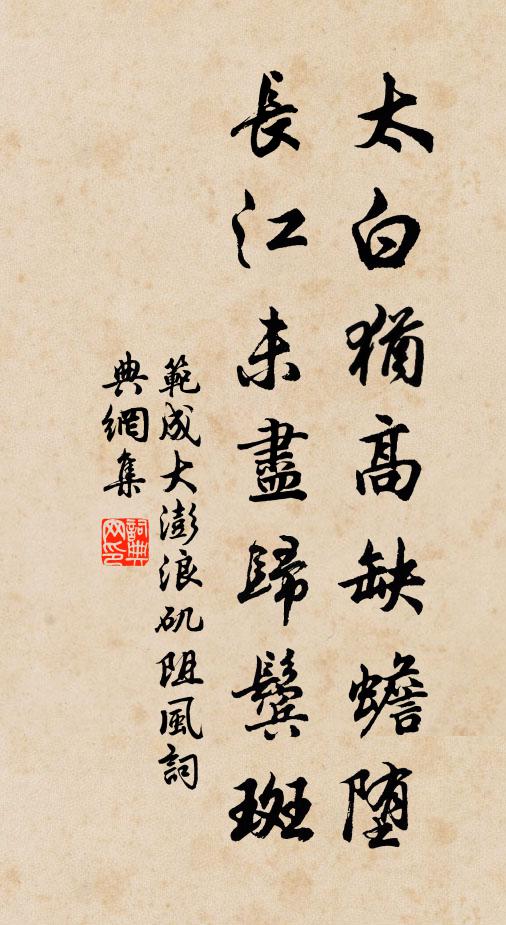 太白猶高缺蟾墮
長江未盡歸鬢斑
範成大澎浪磯阻風詞
典網集
詞典網印